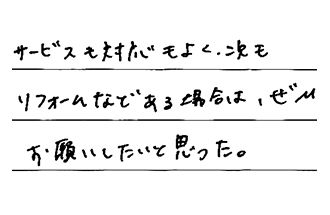 サービスも対応もよく、次も
リフォームなどである場合は、ぜひ
お願いしたいと思った。